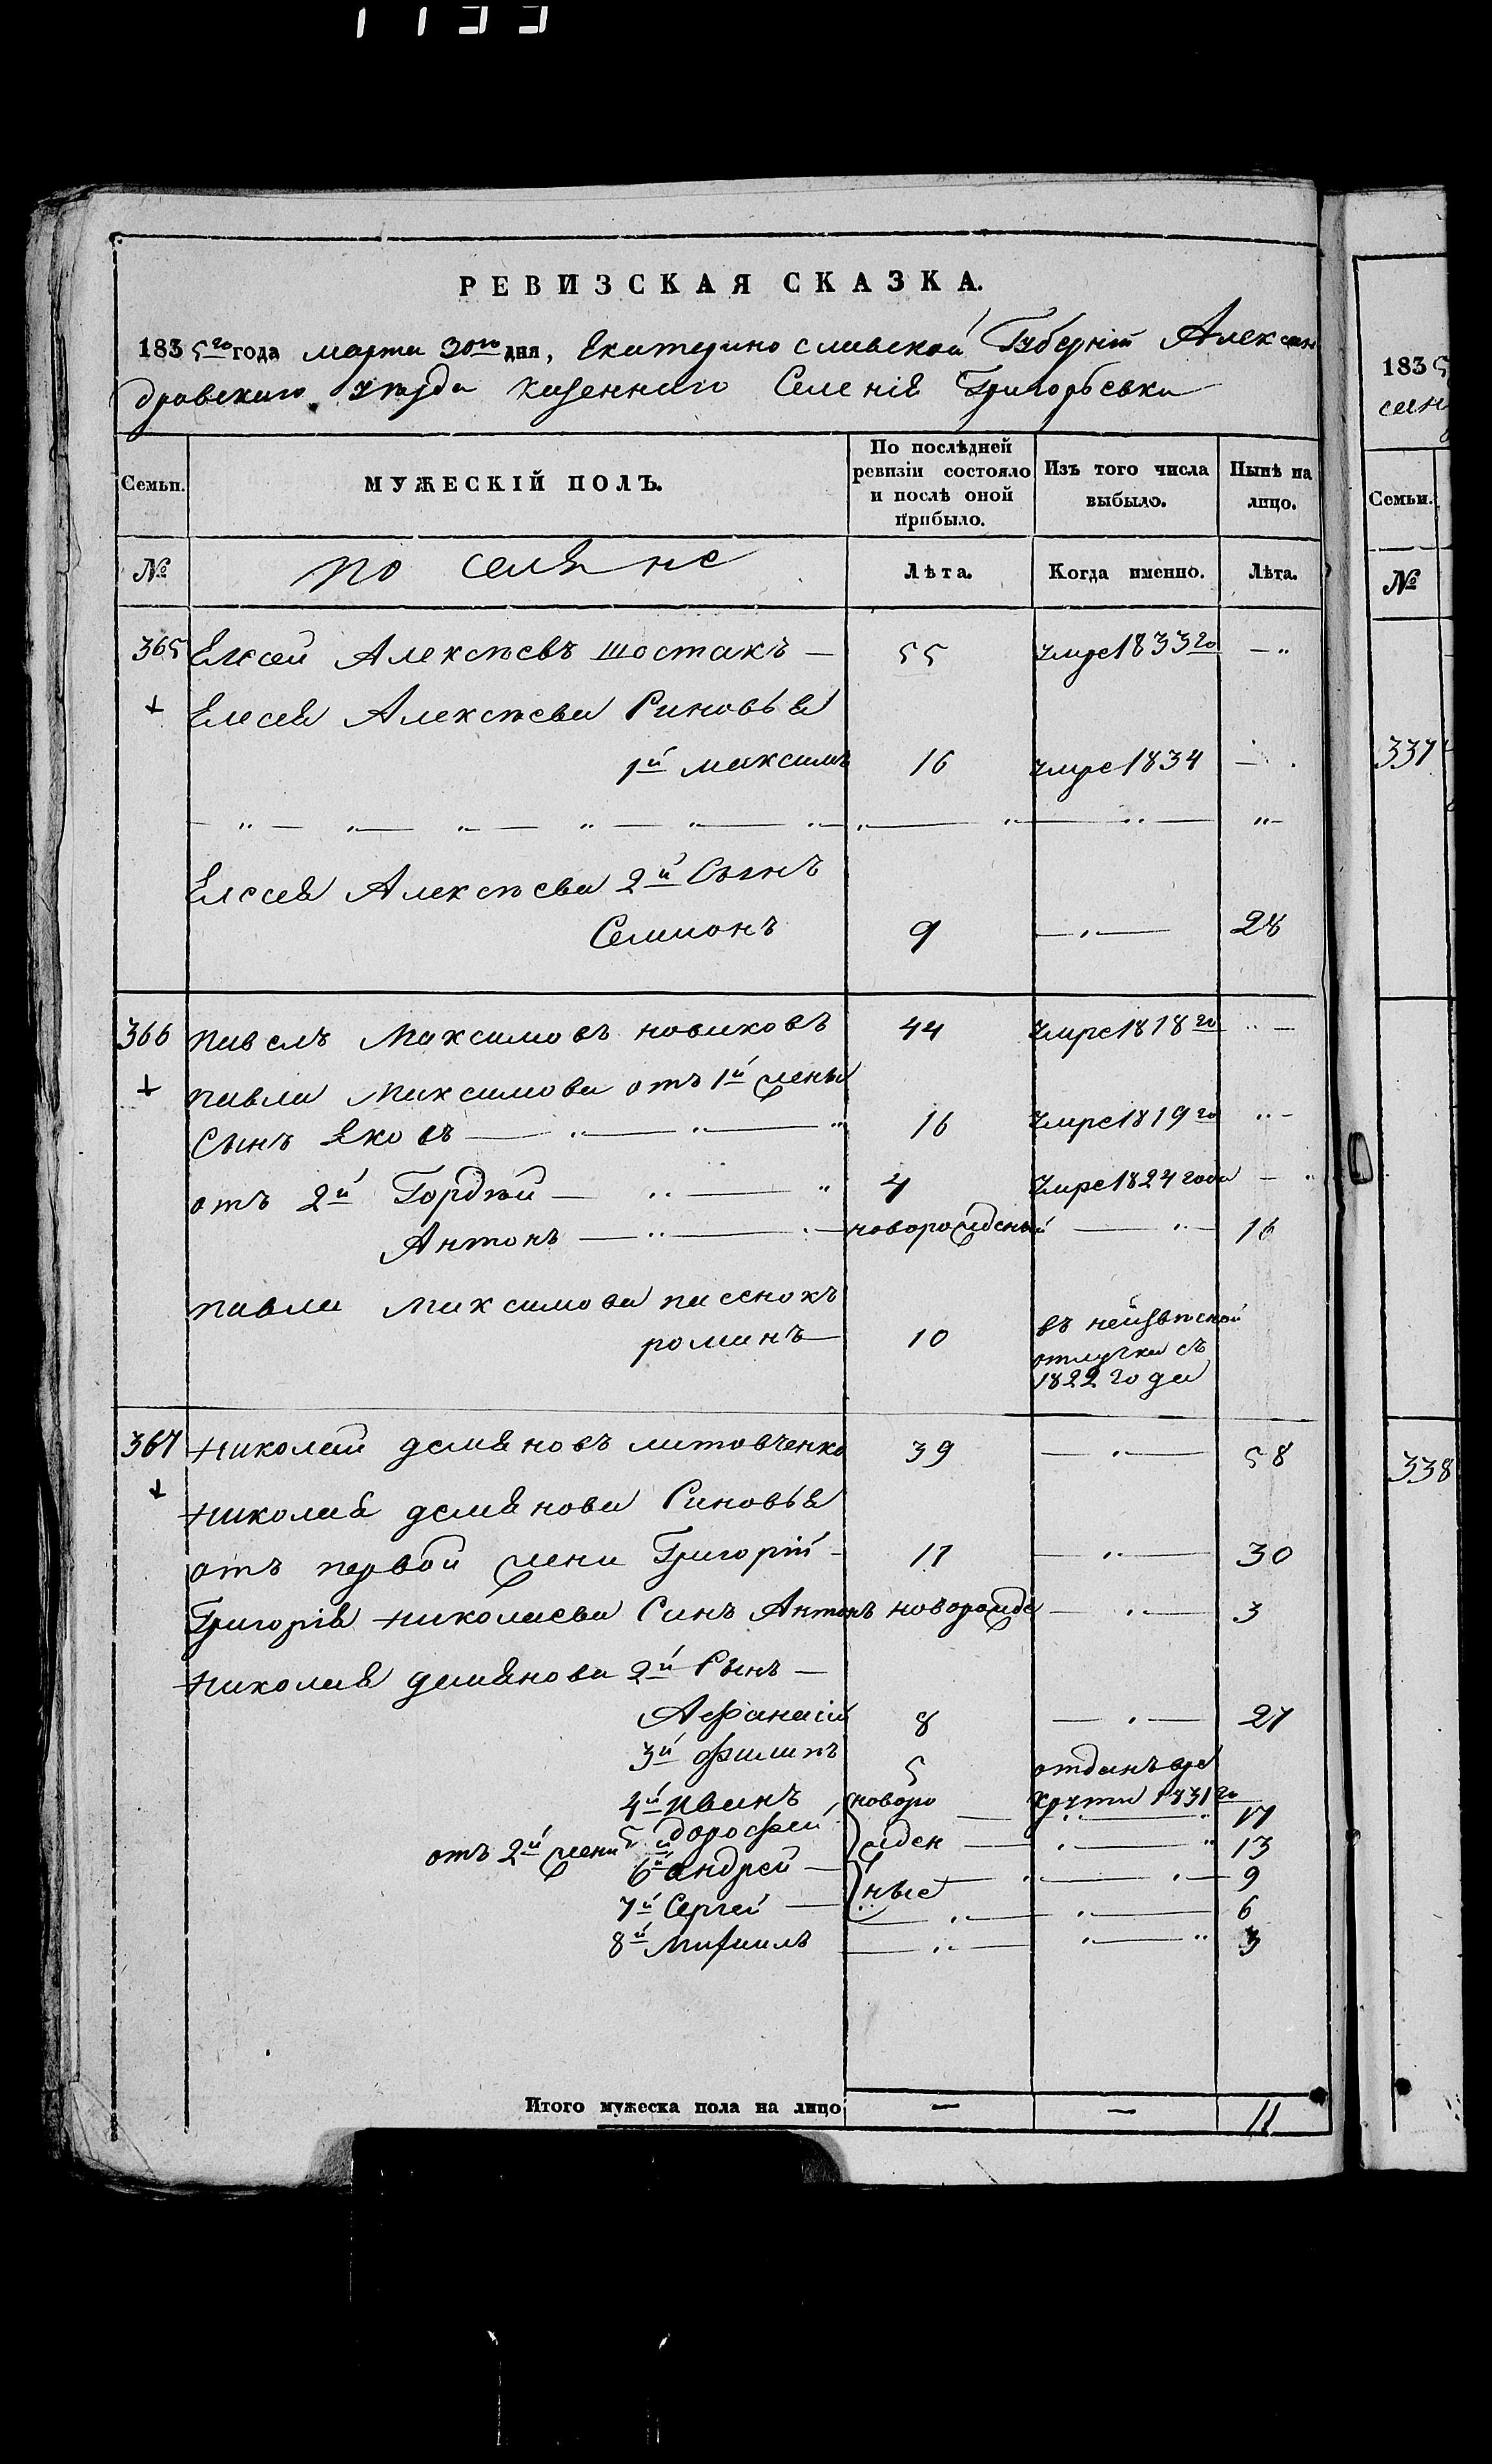 1133
РЕВИЗСКАЯ СКАЗКА.
183 5го года марта 30го дня, Екатеринославской Губерніи Алексан
дровскаго уѣзда казеннаго Селенія Григорьевки
183 5
Семьи.
МУЖЕСКІЙ ПОЛЪ.
По послѣдней ревизіи состояло и послѣ оной прибыло.
Изъ того числа выбыло.
Нынѣ на лицо.
Семьи.
№ поселяне Лѣта. Когда именно. Лѣта.
№
365 Елисей Алексѣевъ шостакъ — 55 умре 1833го — "
Елисея Алексѣева Синовья
1й максимъ 16 умре 1834 —
337
Елисея Алексѣева 2й Сынъ
Семионъ 9 — " — 28
366 павелъ Максимовъ новиковъ 44 умре 1818го " —
павла Максимова отъ 1й жены
Сынъ Яковъ — " — " — " 16 умре 1819го " —
отъ 2й Гордѣй — " — " 4 умре 1824 года — "
Антонъ — " — новорожденый — " — 16
павла Максимова пасенокъ
романъ — 10 въ неизвѣсной
отлучки съ
1822 года
367 николай демяновъ литовченко 39 — " — 58
338
николая демянова Синовья
отъ первой жени Григорій — 11 — " — 30
Григорія николаева Синъ Антонъ новорожде — " — 3
николая демянова 2й Сынъ —
Афанасій 8 — " — 27
3й филипъ 5 отданъ вре
4й иванъ новоро круты 1831го
отъ 2й жени 5й дорофей жден — " — 17
6й андрей — ные — " — 13
7й Сергей — — " — 9
8й михаилъ — " — 6
3
Итого мужеска пола на лицо — — 11